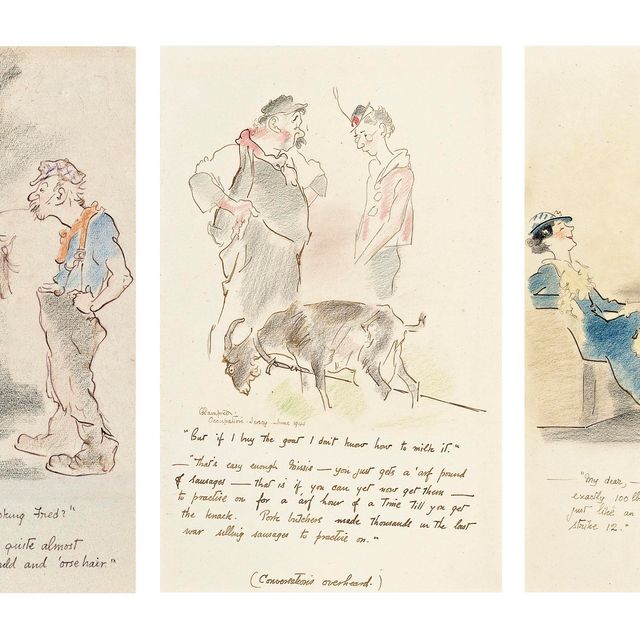 oking Fred?"
quite almost
uld and 'orse hair."
Blampied -
Occupation - Jersey - June 1944
"But if I buy the goat I don't know how to milk it."
— "That's easy enough Missis — you just gets a 'arf pound
of sausages — that is if you can yet now get them —
to practise on for a 'arf hour of a Time Till you get
the knack. Pork butchers made thousands in the last
war selling sausages to practise on."
(Conversations overheard.)
"My dear, —
exactly 100 lb
just like an
strike 12."